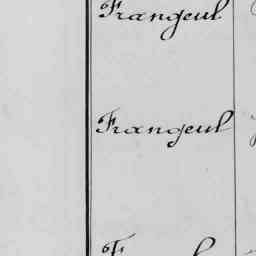 Frangeul
Frangeul